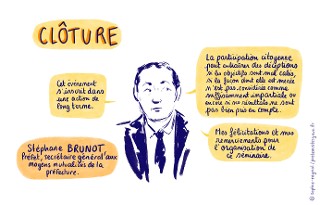 CLÔTURE
Cet événement
s'inscrit dans
une action de
long terme.
La participation citoyenne
peut entraîner des déceptions
si les objectifs sont mal calés,
si la façon dont elle est menée
n'est pas considérée comme
suffisamment impartiale ou
encore si ses résultats ne sont
pas bien pris en compte.
Mes félicitations et mes
remerciements pour
l'organisation de
ce séminaire.
Stéphane BRUNOT
Préfet, secrétaire général aux
moyens mutualisés de la
préfecture.